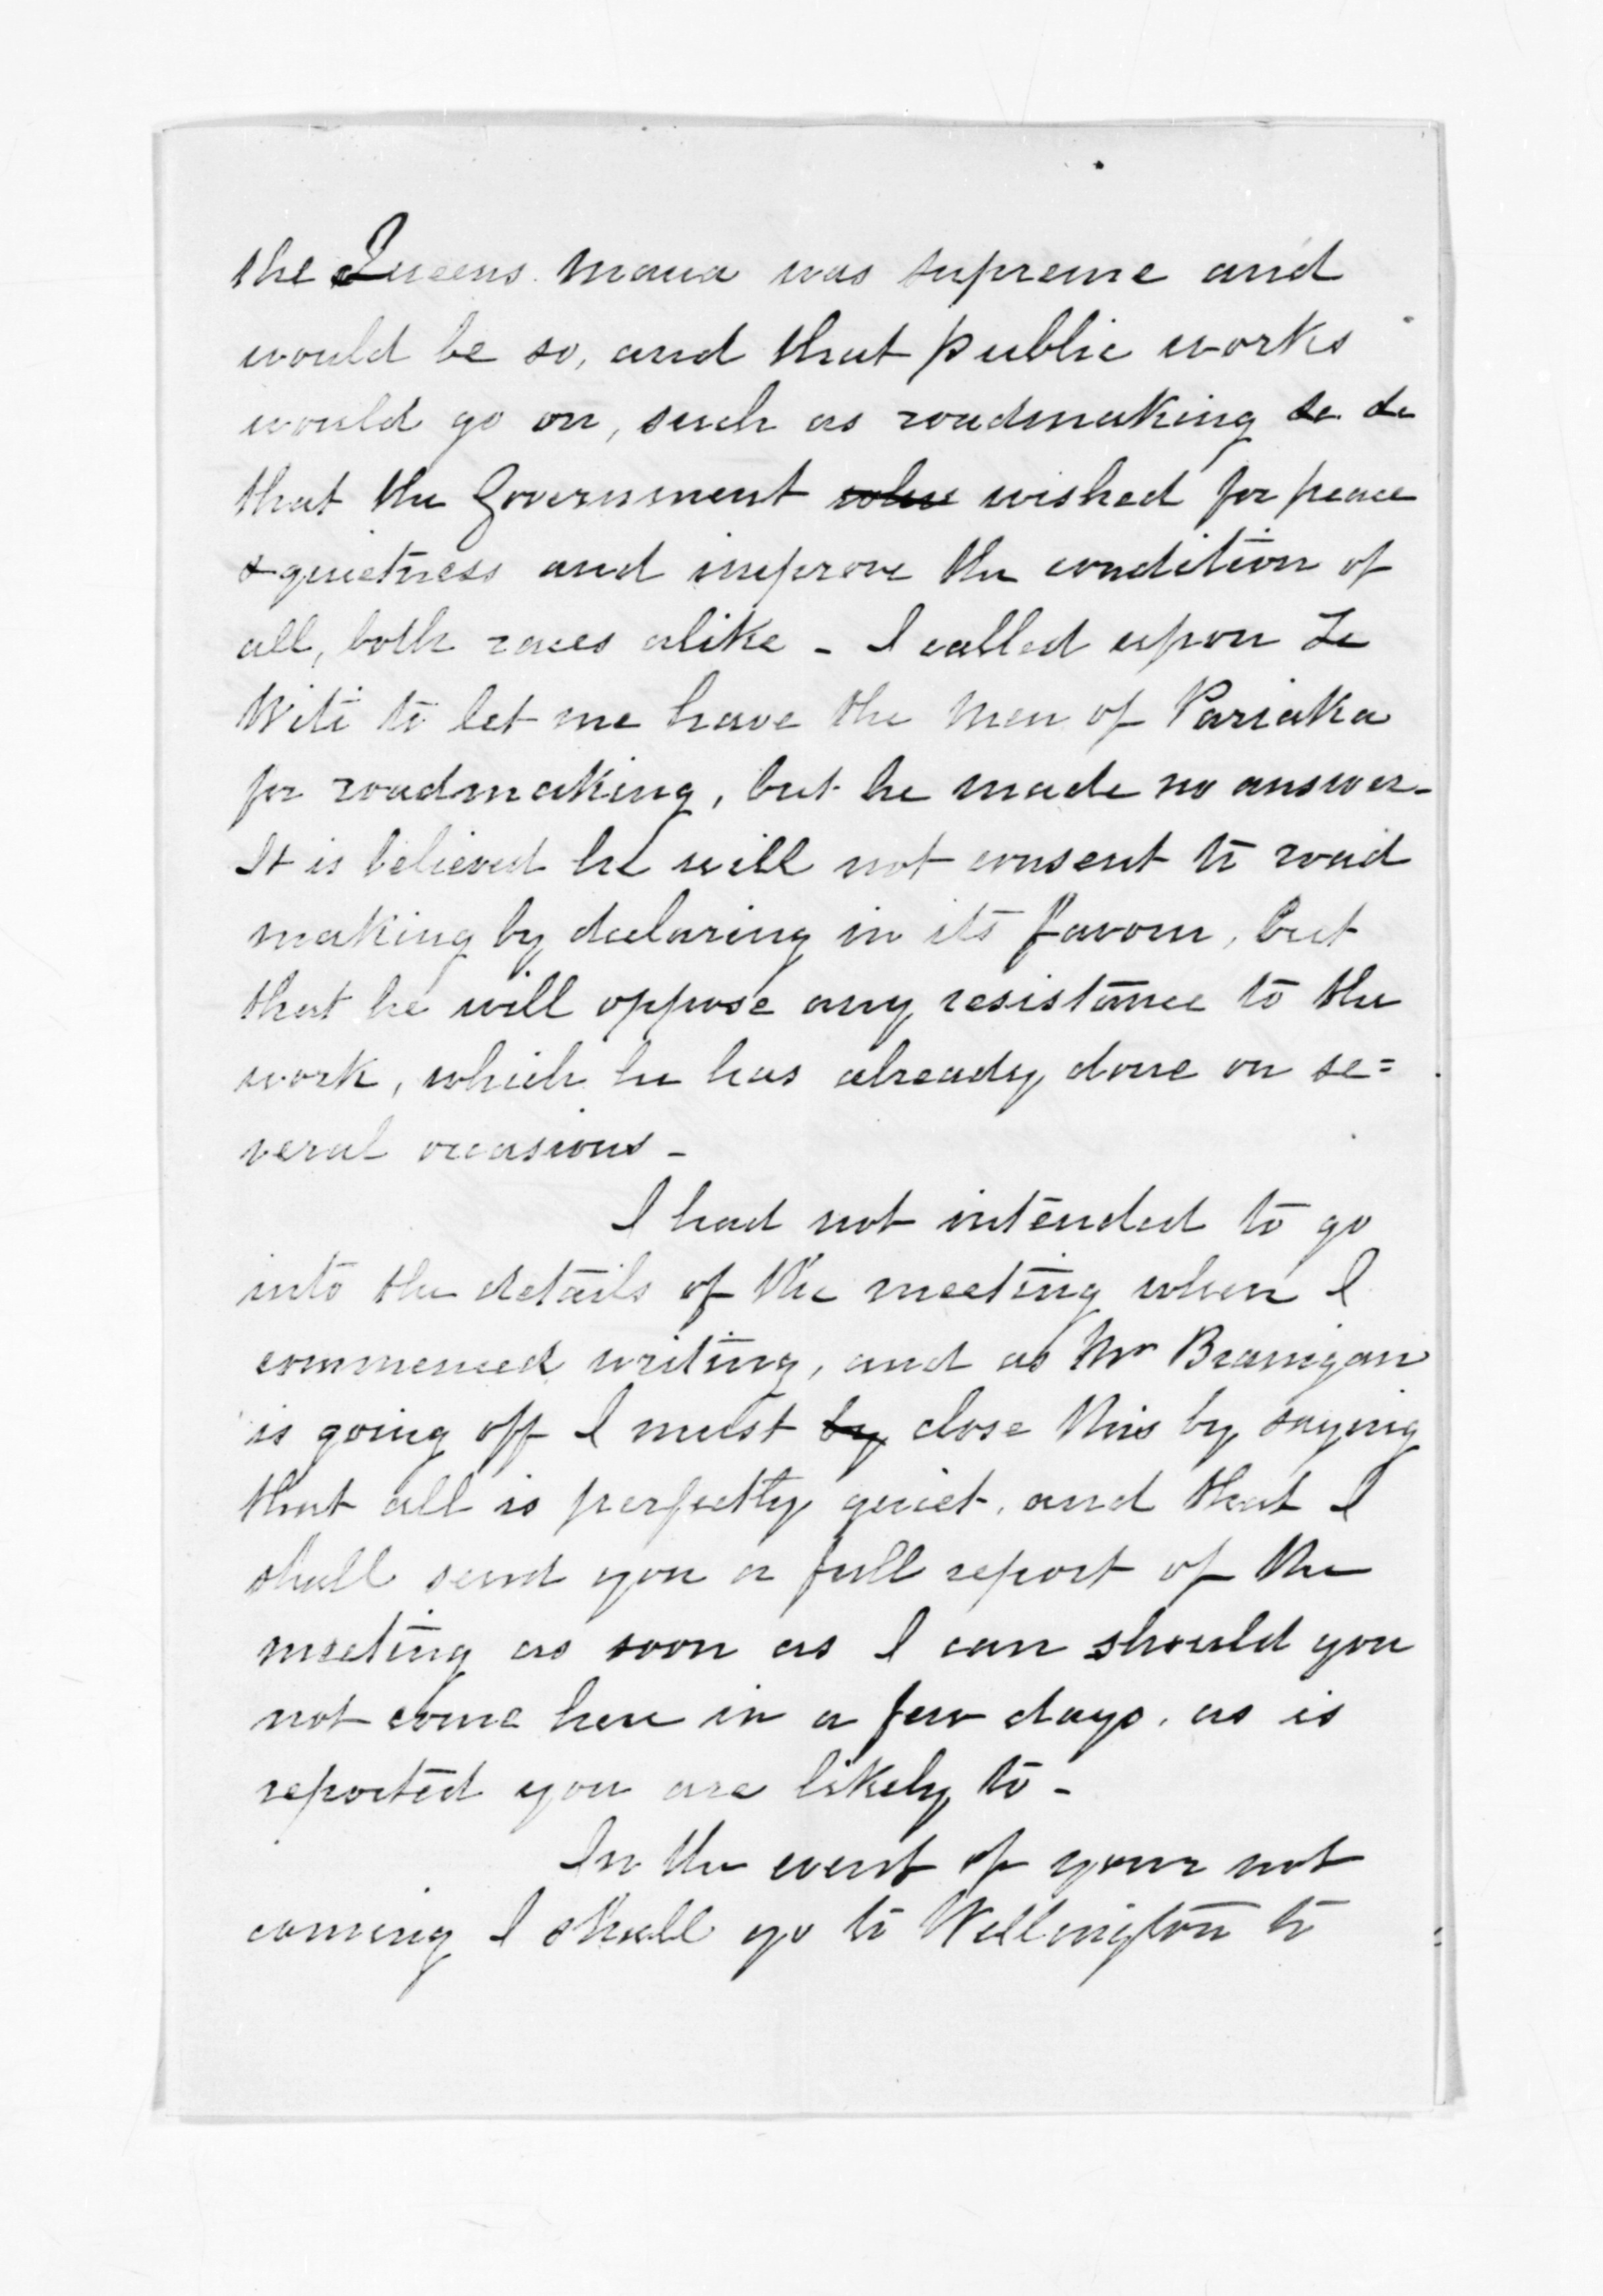 the Queens mana was supreme and
would be so, and that public works
would go on, such as roadmaking &c &c
that the Government wishes wished for peace
& quietness and improve the condition of
all, both races alike - I called upon Te
Witi to let me have the men of Pariaka
for roadmaking, but he made no answer -
It is believed he will not consent to road
making by declaring in its favour, but
that he will oppose any resistance to the
work, which he has already done on se=
veral occasions -
I had not intended to go
into the details of the meeting when I
commenced writing, and as Mr Branigan
is going off I must by close this by saying
that all is perfectly quiet, and that I
shall send you a full report of the
meeting as soon as I can should you
not come here in a few days, as is
reported you are likely to -
In the event of your not
coming I shall go to Wellington to